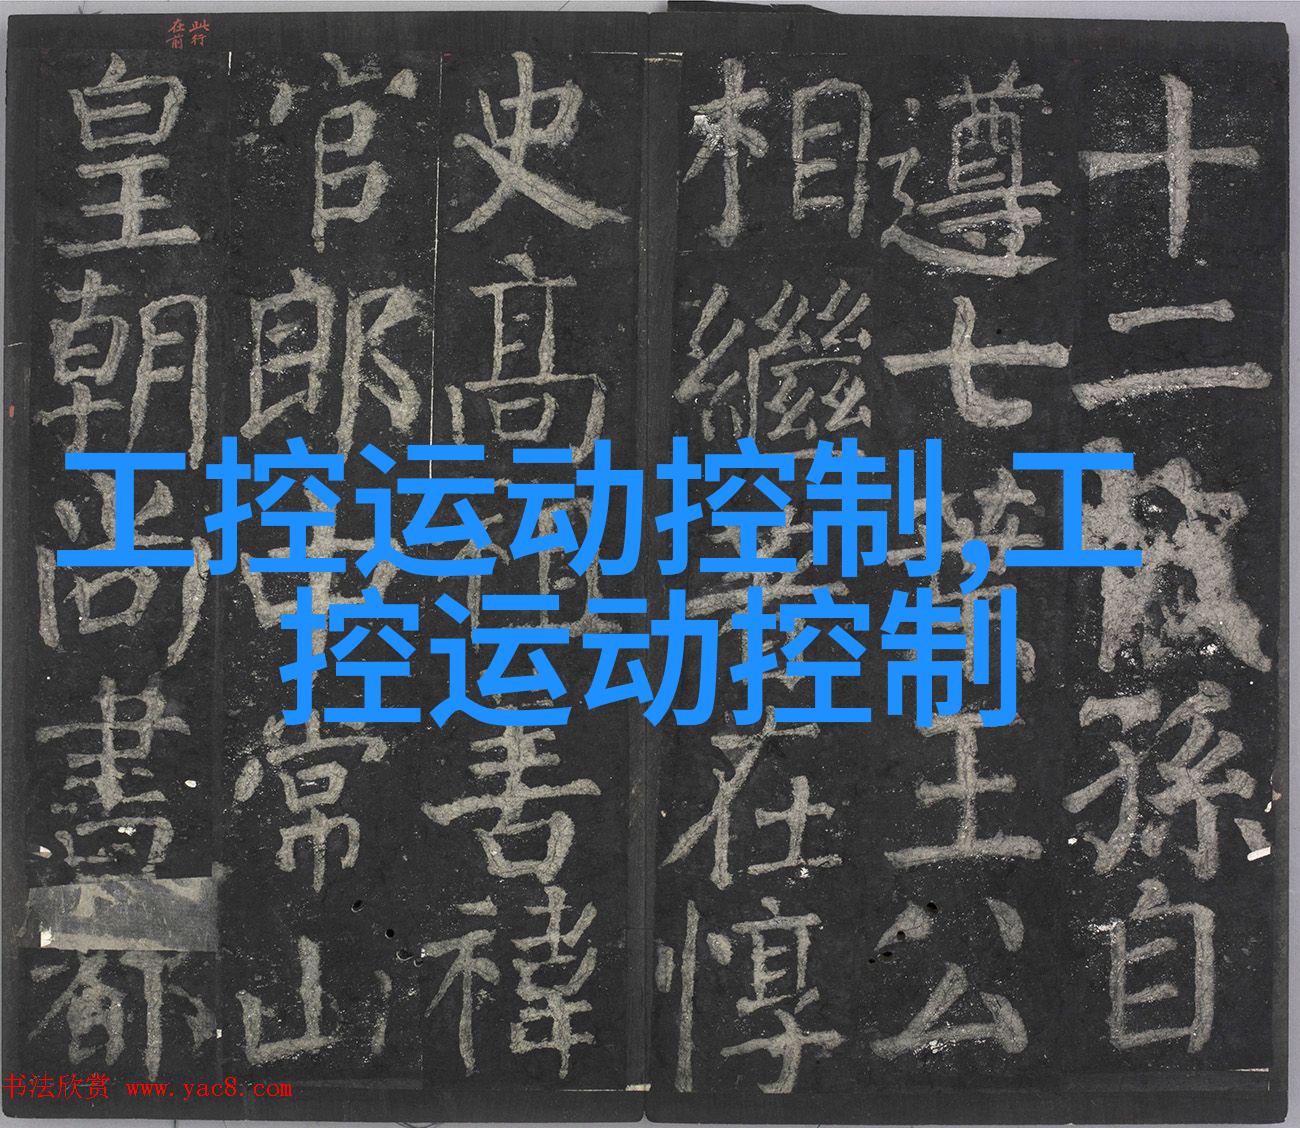 此行
在前
十二孫自
遵七王公
相繼在惇
史高善禕
官郎常山
皇朝尚書都
工控运动控制,工
控运动控制
书法欣赏 www.yac8.com